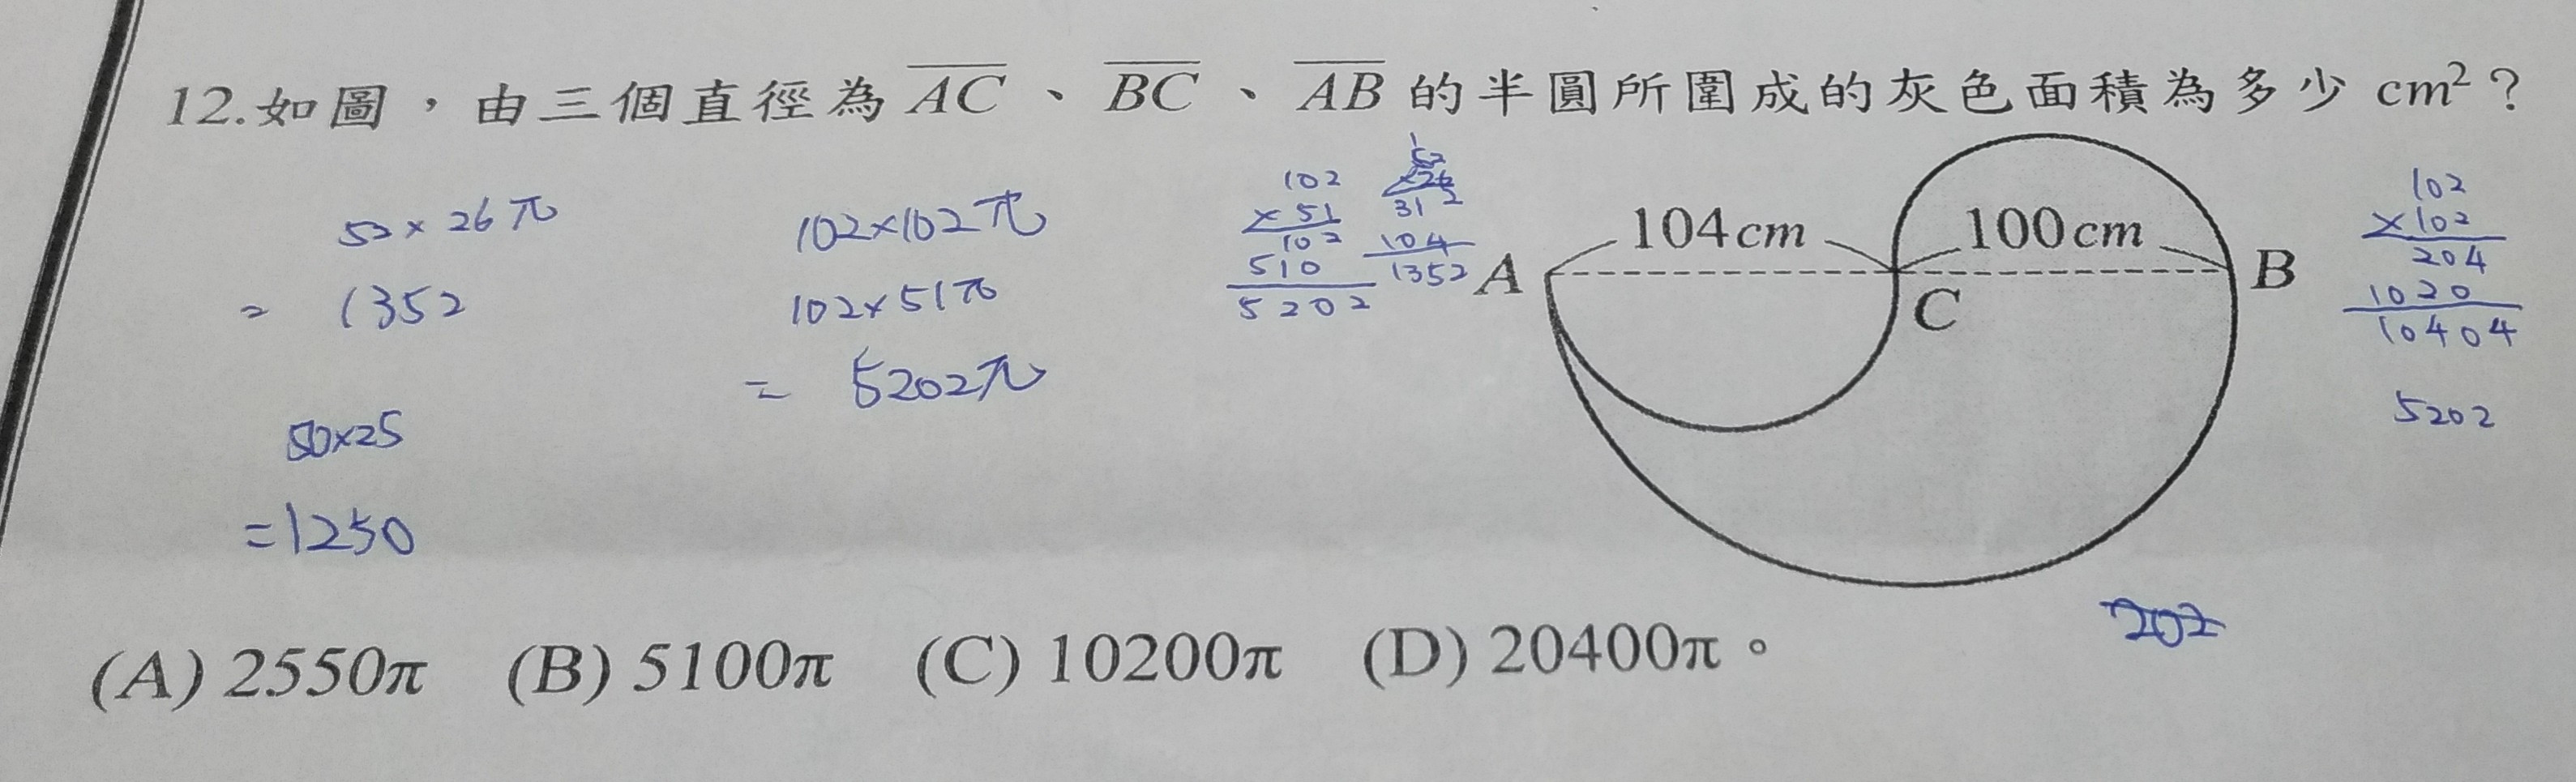 12.如圖，由三個直徑為 AC、BC、AB 的半圓所圍成的灰色面積為多少 cm²？
52×26π
= 1352
50×25
=1250
102×102π
102×51π
= 5202π
102
×51
102
510
5202
52
×26
312
104
1352
104cm
100cm
A
C
B
102
×102
204
1020
10404
5202
202
(A) 2550π (B) 5100π (C) 10200π (D) 20400π。